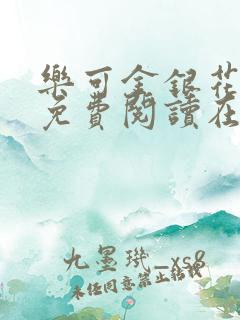 樂可金銀花
免費閱讀在
九墨璣_xs8
未经同意禁止转载